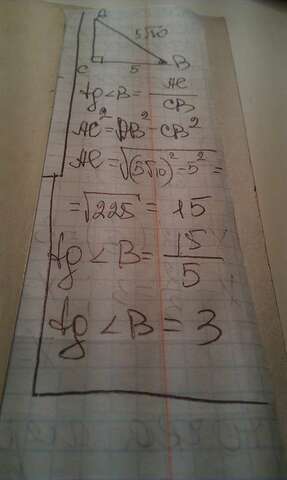 A
5√10
C 5 B
tg<B = AC/CB
AC² = AB² - CB²
AC = √(5√10)² - 5² =
= √225 = 15
tg <B = 15/5
tg <B = 3